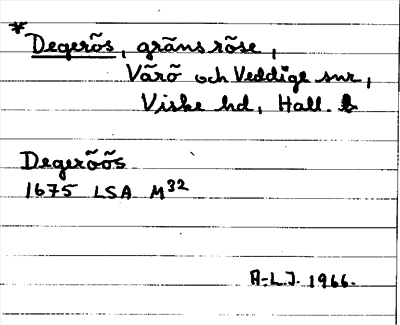 * Degerös, gränsröse,
Värö och Veddige snr,
Viske hd, Hall. l.
Degeröös
1675 LSA M32
A-L.J. 1966.